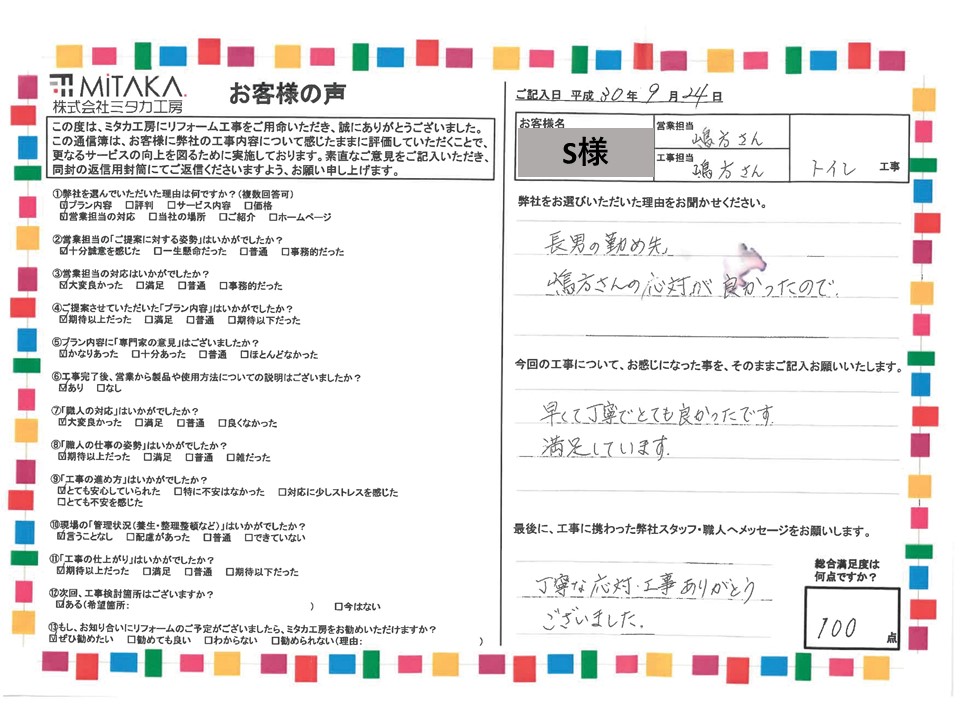 MiTAKA
株式会社ミタカ工房
お客様の声
この度は、ミタカ工房にリフォーム工事をご用命いただき、誠にありがとうございました。
この通信簿は、お客様に弊社の工事内容について感じたままに評価していただくことで、
更なるサービスの向上を図るために実施しております。素直なご意見をご記入いただき、
同封の返信用封筒にてご返信くださいますよう、お願い申し上げます。
①弊社を選んでいただいた理由は何ですか?(複数回答可)
☑プラン内容 □評判 □サービス内容 □価格
☑営業担当の対応 □当社の場所 □ご紹介 □ホームページ
②営業担当の「ご提案に対する姿勢」はいかがでしたか?
☑十分誠意を感じた □一生懸命だった □普通 □事務的だった
③営業担当の対応はいかがでしたか?
☑大変良かった □満足 □普通 □事務的だった
④ご提案させていただいた「プラン内容」はいかがでしたか?
☑期待以上だった □満足 □普通 □期待以下だった
⑤プラン内容に「専門家の意見」はございましたか?
☑かなりあった □十分あった □普通 □ほとんどなかった
⑥工事完了後、営業から製品や使用方法についての説明はございましたか?
☑あり □なし
⑦「職人の対応」はいかがでしたか?
☑大変良かった □満足 □普通 □良くなかった
⑧「職人の仕事の姿勢」はいかがでしたか?
☑期待以上だった □満足 □普通 □雑だった
⑨「工事の進め方」はいかがでしたか?
☑とても安心していられた □特に不安はなかった □対応に少しストレスを感じた
□とても不安を感じた
⑩現場の「管理状況(養生・整理整頓など)」はいかがでしたか?
☑言うことなし □配慮があった □普通 □できていない
⑪「工事の仕上がり」はいかがでしたか?
☑期待以上だった □満足 □普通 □期待以下だった
⑫次回、工事検討箇所はございますか?
☑ある(希望箇所: ) □今はない
⑬もし、お知り合いにリフォームのご予定がございましたら、ミタカ工房をお勧めいただけますか?
☑ぜひ勧めたい □勧めても良い □わからない □勧められない(理由: )
ご記入日 平成 30年 9月 24日
お客様名
S様
営業担当
嶋方さん
工事担当
嶋方さん
トイレ 工事
弊社をお選びいただいた理由をお聞かせください。
長男の勤め先、
嶋方さんの応対が良かったので。
今回の工事について、お感じになった事を、そのままご記入お願いいたします。
早くて丁寧でとても良かったです。
満足しています。
最後に、工事に携わった弊社スタッフ・職人へメッセージをお願いします。
丁寧な応対・工事ありがとう
ございました。
総合満足度は
何点ですか?
100 点